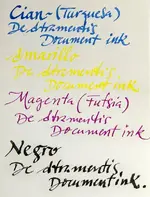 Cian-(Turquesa)
De Atramentis
Document ink
Amarillo
De Atramentis
Document ink
Magenta (Futsia)
De Atramentis
Document ink
Negro
De Atramentis
Document ink.